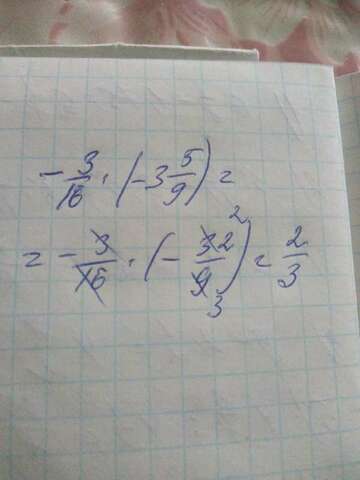 -3/16 · (-3 5/9) =
= -3/16 · (-32/9) 2 3 = 2/3